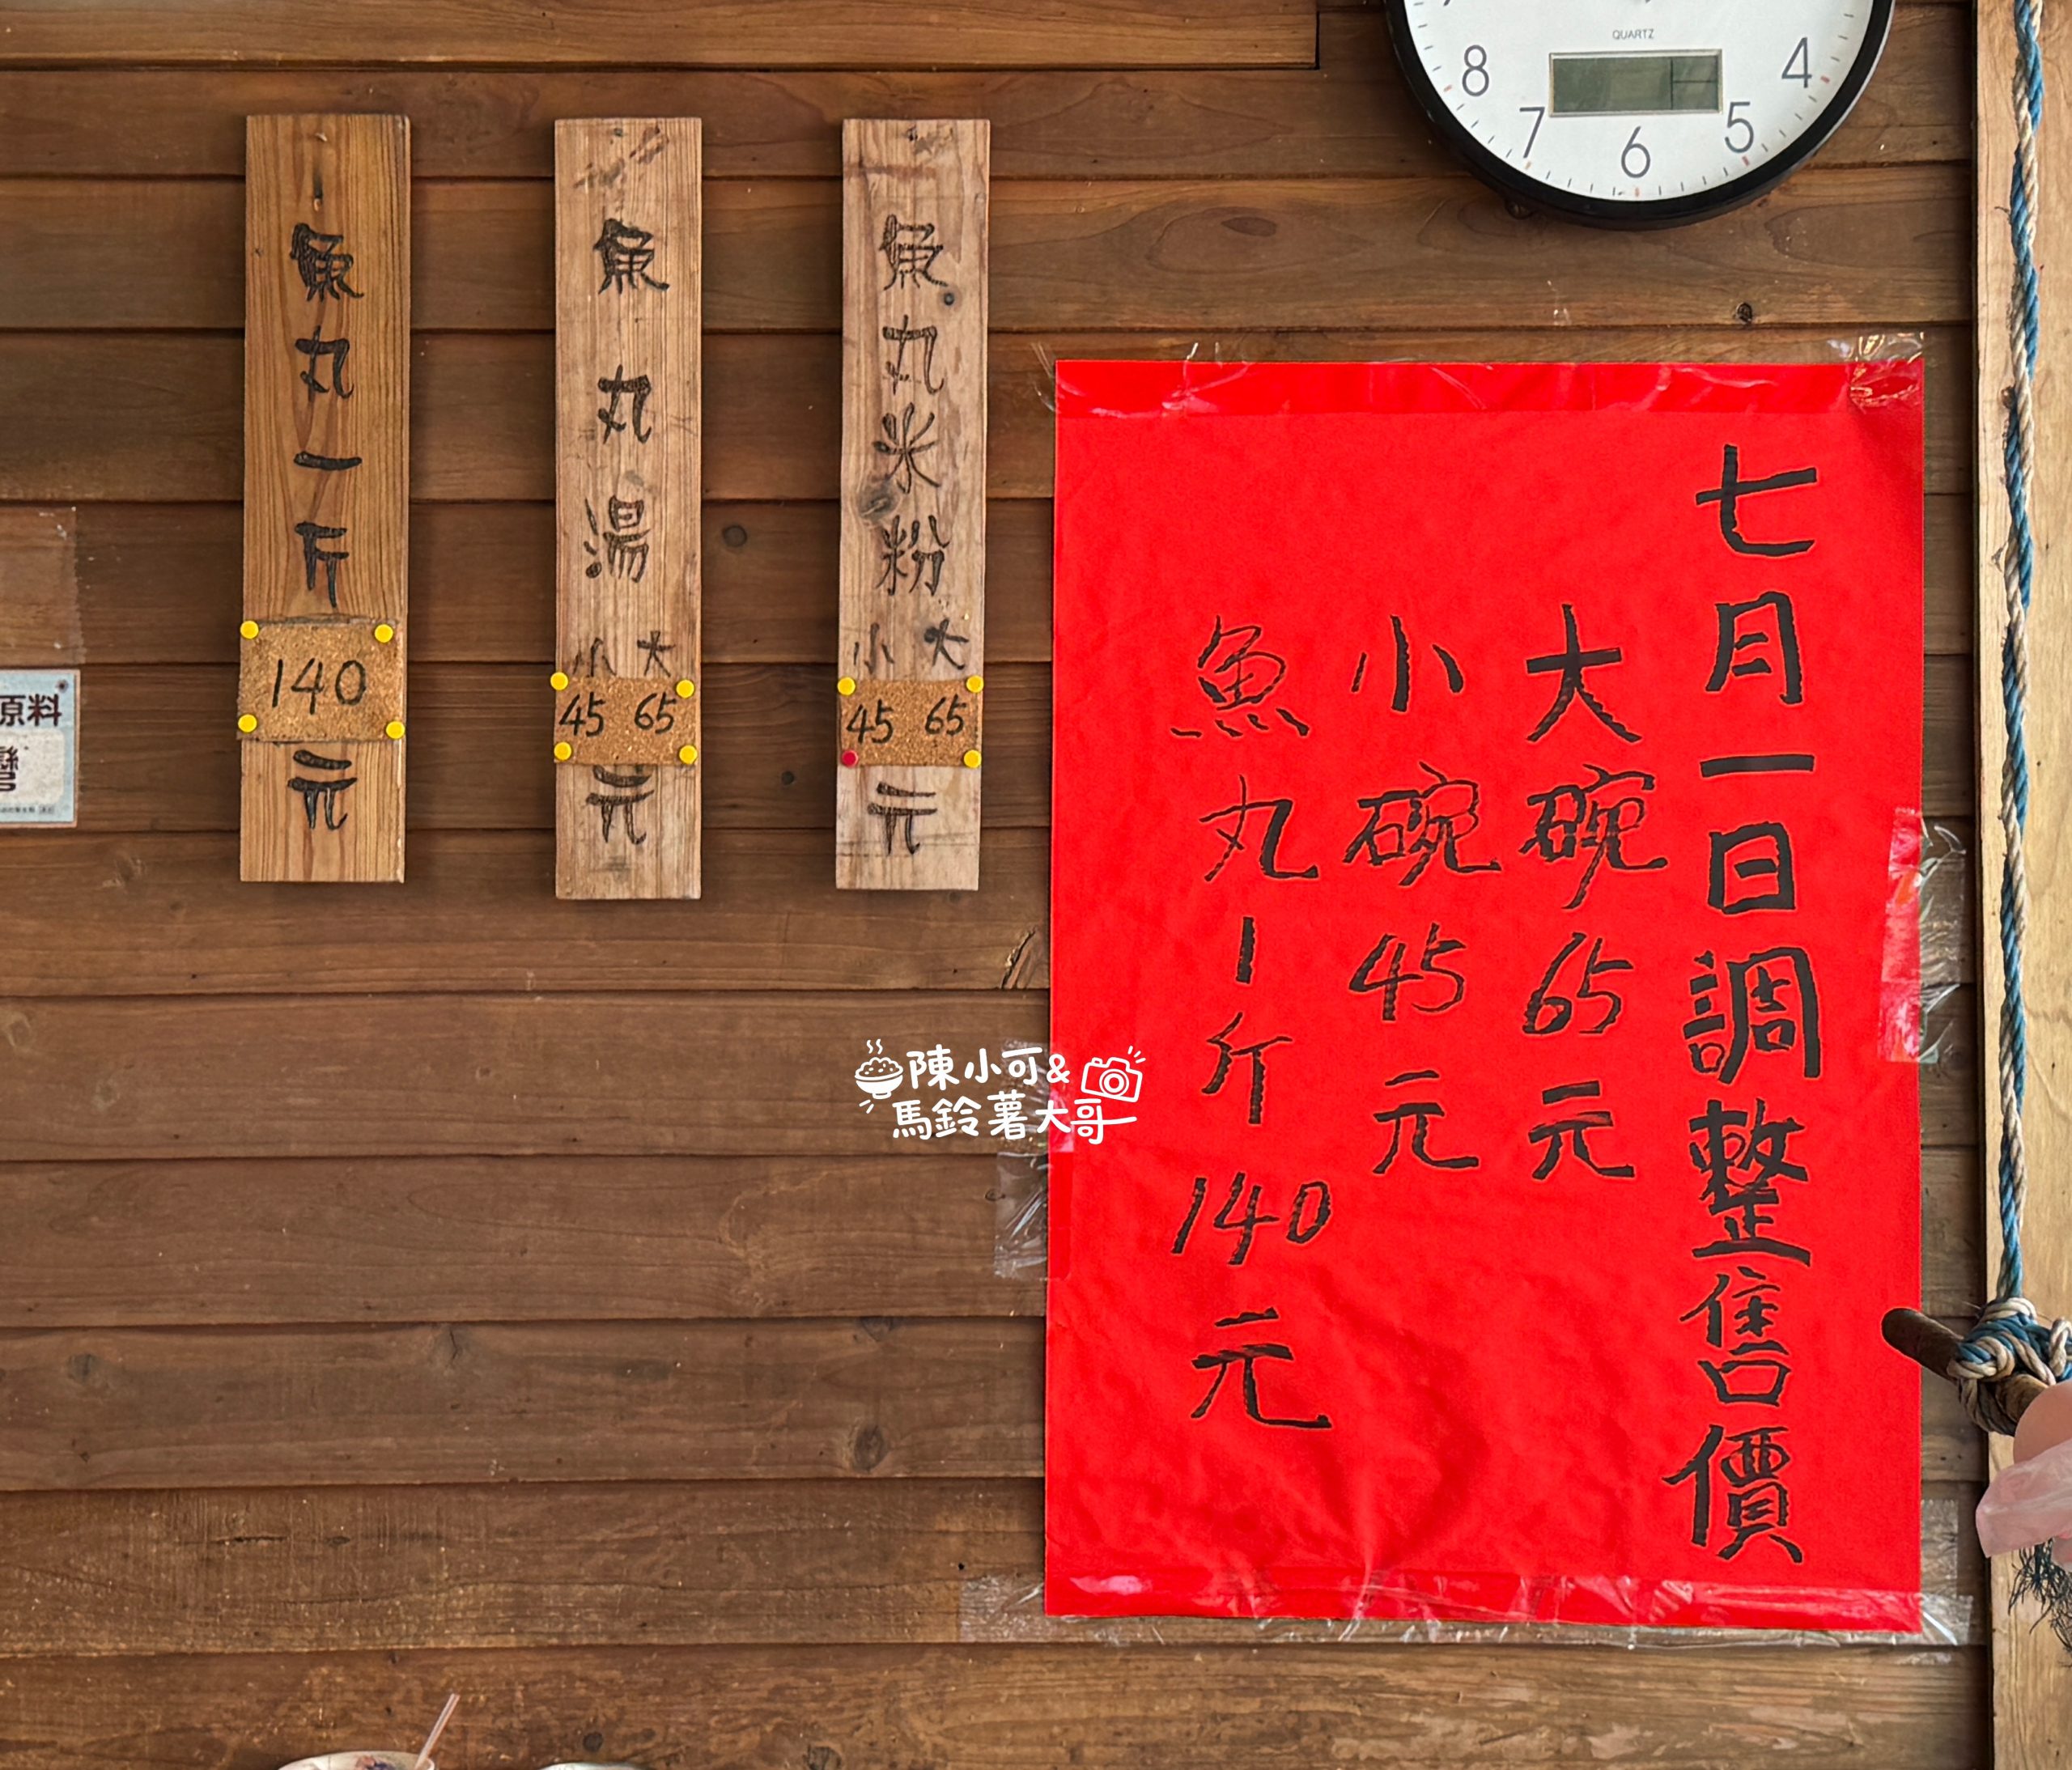 魚丸一斤
140
元
魚丸湯
小 大
45 65
元
魚丸米粉
小 大
45 65
元
QUARTZ
8 7 6 5 4
七月一日調整售價
大碗65元
小碗45元
魚丸1斤140元
原料
陳小可&
馬鈴薯大哥